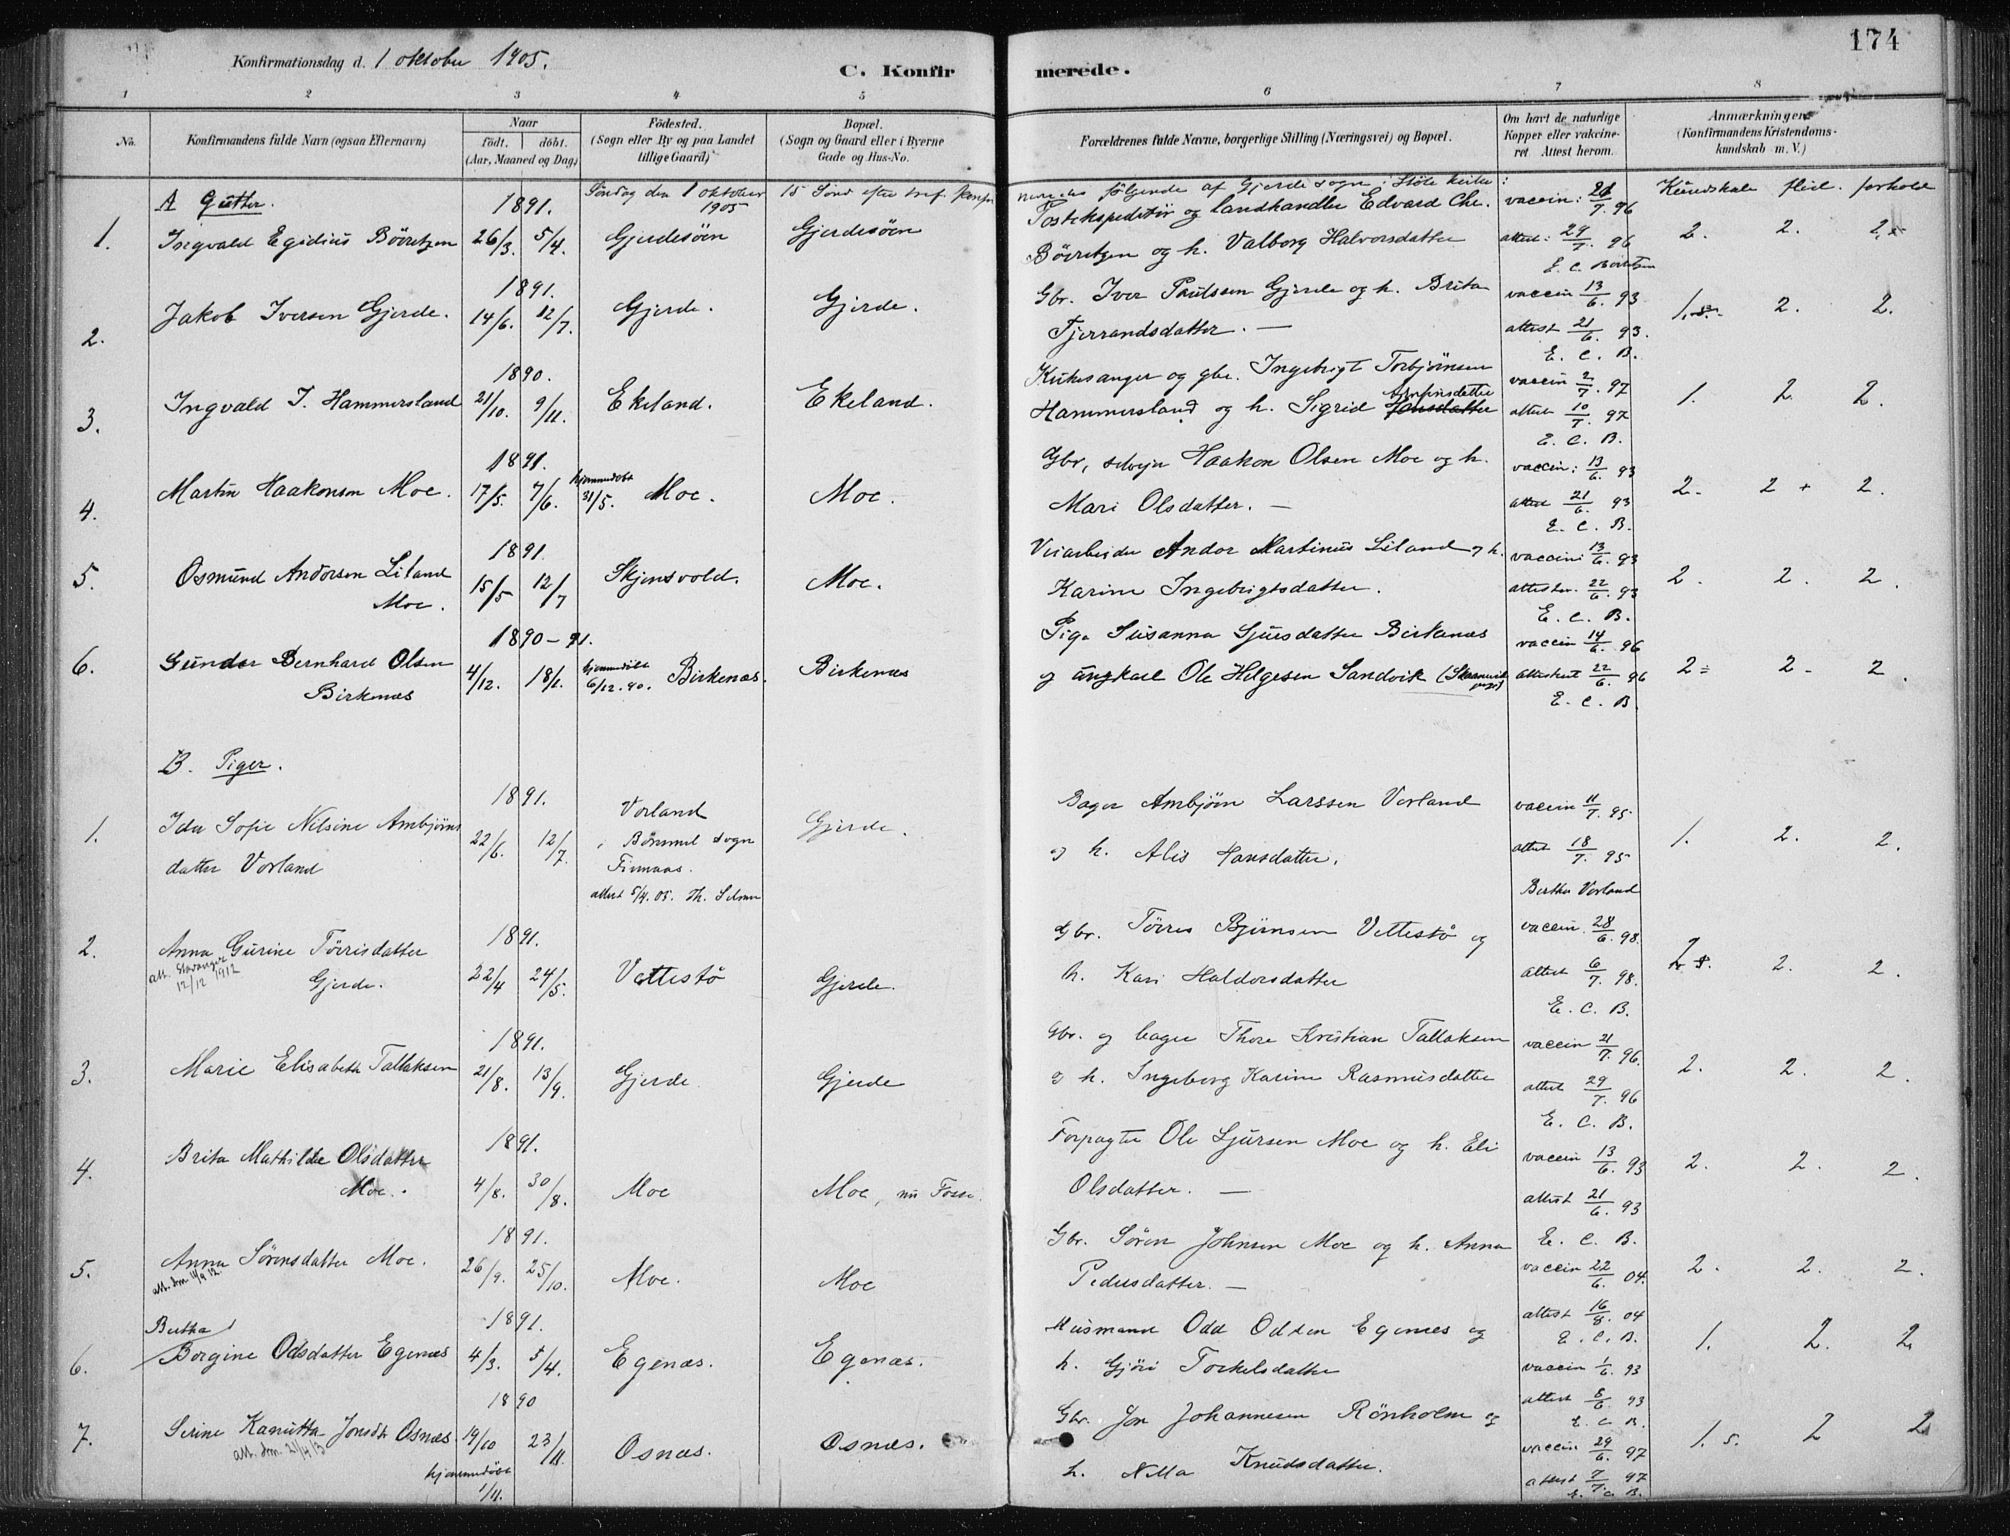 174
Konfirmationsdag d. 1 oktober 1905.
C. Konfirmerede.
1 2 3 4 5 6 7 8
No.
Konfirmandens fulde Navn (ogsaa Efternavn)
Naar
födt. döbt.
(Aar, Maaned og Dag)
Födested.
(Sogn eller By og paa Landet
tillige Gaard)
Bopæl.
(Sogn og Gaard eller i Byerne
Gade og Hus-No.
Forældrenes fulde Navne, borgerlige Stilling (Næringsvei) og Bopæl.
Om havt de naturlige
Kopper eller vaccine-
ret Attest herom.
Anmærkninger
(Konfirmandens Kristendoms-
kundskab m. V.)
Söndag den 1 oktober 1905 15 Sönd efter tref. følgende af Gjerde sogn i Stöle kirke:
Kundskab flid. forhold
A Gutter.
1. Ingvald Egidius Bövretzen 1891. 26/3. 5/4. Gjerdesöen Gjerdesöen
Postekspeditør og landhandler Edvard Chr.
Bövretzen og h. Valborg Halvorsdatter
vaccin: 21/7. 96
attest: 29/7. 96
2. 2. 2.
2. Jakob Iversen Gjerde. 1891. 14/6. 12/7. Gjerde. Gjerde.
Gbr. Iver Paulssen Gjerde og h. Brita
Tjerrandsdatter. —
vaccin 13/6. 93
attest 21/6. 93.
E. C. B.
1. 2. 2.
3. Ingvald I. Hammersland 1890. 21/10. 9/11. Ekeland. Ekeland.
Kirkesanger og gbr. Ingebrigt Torbjörnsen
Hammersland og h. Sigrid Jonsdatter
vaccin 2/7. 97
attest 10/7. 97
E. C. B.
1. 2. 2.
4. Martin Haakonsen Moe. 1891. 17/5. 7/6. hjemmedöbt 31/5. Moe. Moe.
Gbr, selvejer Haakon Olsen Moe og h.
Mari Olsdatter. —
vaccin: 13/6. 93
attest 21/6. 93
E. C. B.
2. 2 + 2.
5. Osmund Andorsen Liland
Moe. 1891. 15/5 12/7 Skjensvold. Moe.
Veiarbeider Andor Martinus Liland og h.
Karine Ingebrigtsdatter.
vaccin: 13/6. 93
attester. 22/6. 93
E. C. B.
2. 2. 2.
6. Gunder Bernhard Olsen
Birkenæs 1890-91. 4/12. 18/1. hjemmedöbt 6/12.90. Birkenæs. Birkenæs
Pige Susanna Sjursdatter Birkenæs
og ungkarl Ole Helgesen Sandvik (Skaanevik
vaccin 14/6. 96
attesteret 22/6. 96
E. C. B.
2 2 2.
B. Piger.
1. Ida Sofie Nilsine Ambjörns
datter Vorland 1891. 22/6. 12/7. Vorland
i Bömmel sogn
Finnaas.
attest 5/4. 05. Gjerde.
Bager Ambjörn Larssen Vorland
og h. Alis Hansdatter.
vaccin 11/7. 95
attest 18/7. 95
Berthe Vorland
1. 2. 2.
2. Anna Gurine Törrisdatter
Gjerde. att. Stavanger 12/12 1912 1891. 22/4 24/5. Vettestö Gjerde.
Gbr. Törres Björnsen Vettestö og
h. Kari Haldorsdatter
vaccin. 28/6. 98.
attest 6/7. 98.
E. C. B.
2. 2. 2.
3. Marie Elisabeth Tallaksen 1891. 21/8. 13/9. Gjerde Gjerde
Gbr. og bager Thore Kristian Tallaksen
og h. Ingeborg Karine Rasmusdatter
vaccin 21/7. 96.
attest 29/7. 96
E. C. B.
2. 2. 2.
4. Brita Mathilde Olsdatter
Moe. 1891. 4/8. 30/8. Moe Moe, nu Fosse.
Forpagter Ole Sjursen Moe og h. Eli
Olsdatter. —
vaccin 13/6. 93
attest 21/6. 93
E. C. B.
2. 2. 2.
5. Anna Sörensdatter Moe. 1891. 26/9. 25/10. Moe. Moe
Gbr. Sören Johnsen Moe og h. Anna
Pedersdatter. —
vaccin 22/6. 04.
attest 16/8. 04
E. C. B.
2. 2. 2.
6. Bertha
Borgine Odsdatter Egenæs 1891. 4/3. 5/4. Egenæs. Egenæs.
Husmand Odd Odsen Egenæs og
h. Gjöri Torkelsdatter
vaccin 1/6. 93
attest 8/6. 93
E. C. B.
1. 2. 2
7. Serine Kanutta Jonsdtr Osnæs. 1890 19/10 23/11. Osnæs. Osnæs.
att. dm 21/4 13
hjemmedöbt 1/11.
Gbr. Jon Johannesen Rönholm og
h. Nilla Knudsdatter.
vaccin 29/6. 97
attest 7/7. 97
E. C. B.
1. s. 2 2